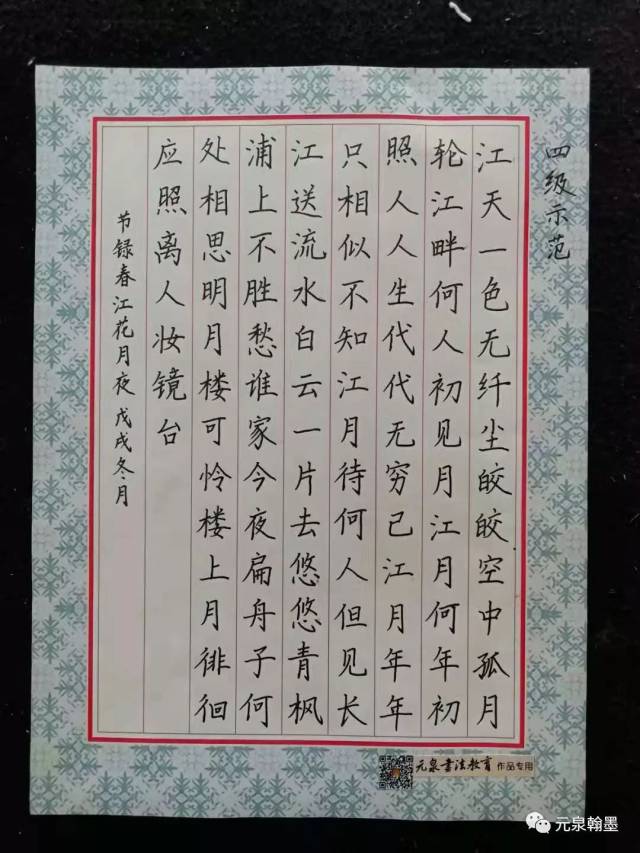 四级示范
江天一色无纤尘皎皎空中孤月
轮江畔何人初见月江月何年初
照人人生代代无穷已江月年年
只相似不知江月待何人但见长
江送流水白云一片去悠悠青枫
浦上不胜愁谁家今夜扁舟子何
处相思明月楼可怜楼上月徘徊
应照离人妆镜台
节録春江花月夜戊戌冬月
元泉书法教育 作品专用
元泉翰墨